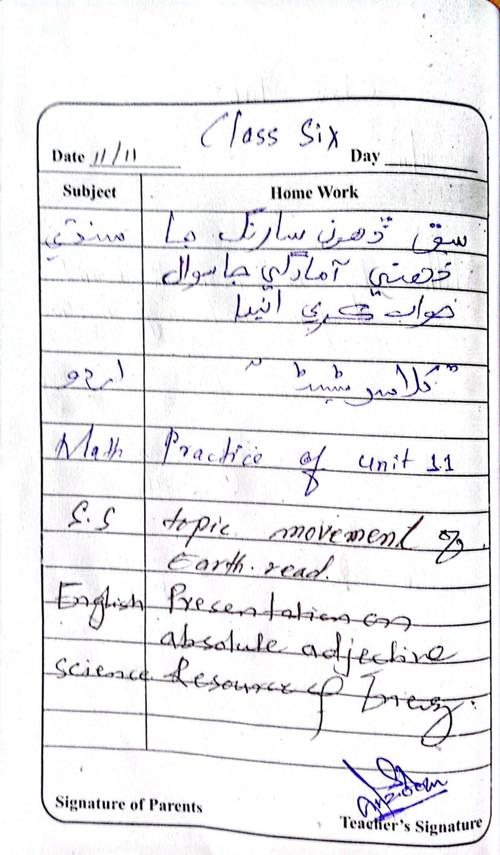 Class Six
Date 11/11 Day
Subject Home Work
سنڌي سبق ڏھون سارنگ جا
ذهني آمادگي جا سوال
جواب ڪري اڻيا
اردو "کلاس ٹیسٹ"
Math Practice of unit 11
S.S topic movement of
Earth. read.
English Presentation on
absolute adjective
science Resource of Energy.
Signature of Parents
Teacher's Signature